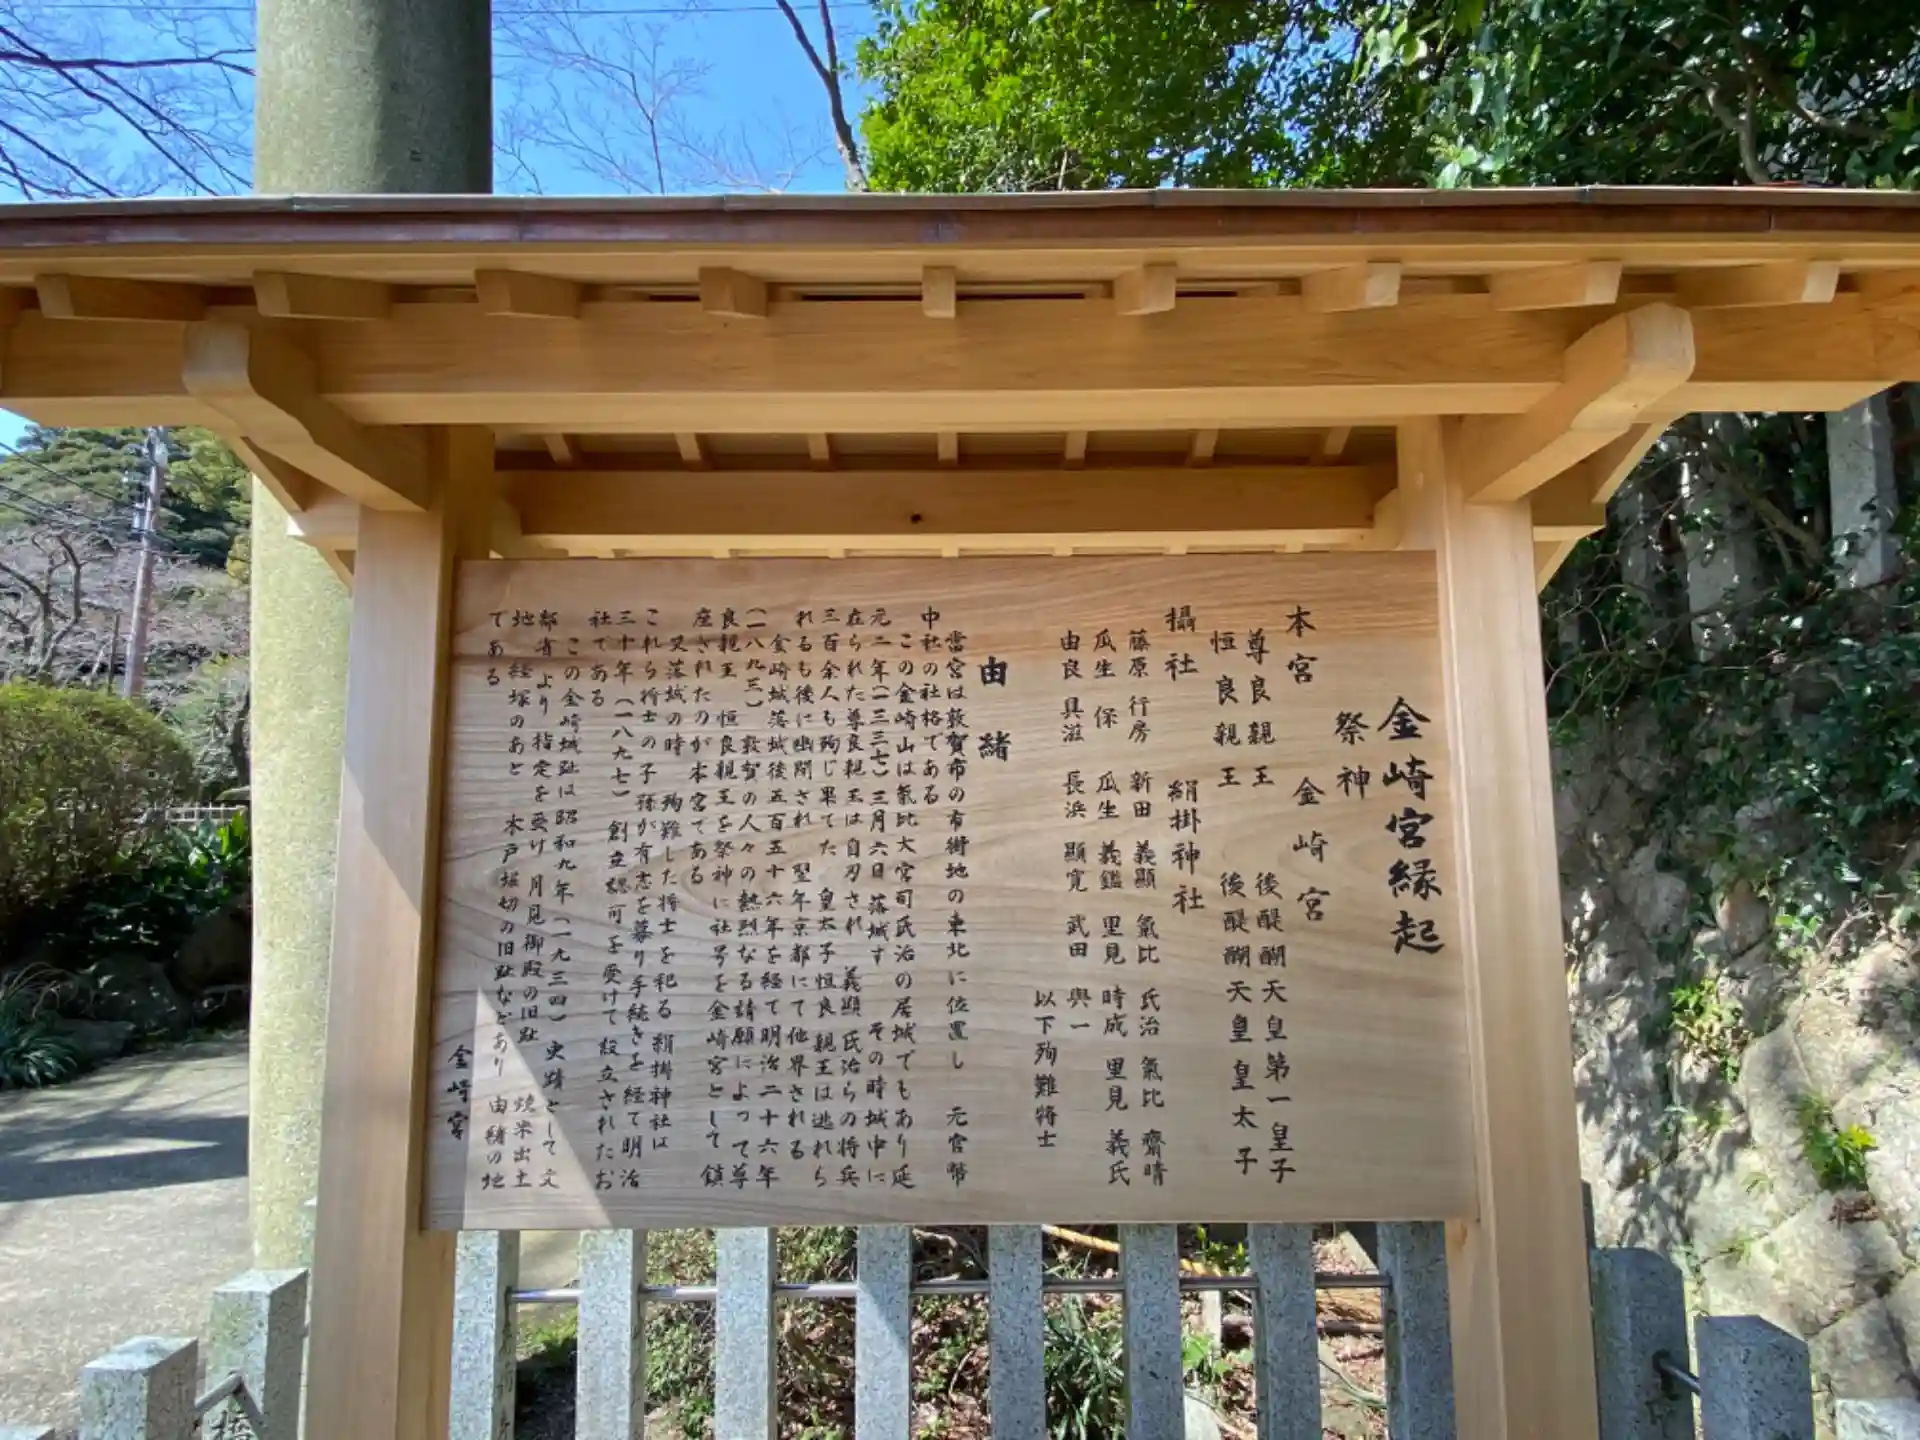 金崎宮縁起
祭神
本宮 金崎宮
尊良親王 後醍醐天皇第一皇子
恒良親王 後醍醐天皇皇太子
攝社 絹掛神社
藤原 行房 新田 義顯 氣比 氏治 氣比 齋晴
瓜生 保 瓜生 義鑑 里見 時成 里見 義氏
由良 具滋 長浜 顯寛 武田 與一
以下殉難将士
由緒
當宮は敦賀市の市街地の東北に位置し 元官幣
中社の社格である
この金崎山は氣比大宮司氏治の居城でもあり延
元二年(一三三七)三月六日 落城す その時城中に
在られた尊良親王は自刃され 義顯 氏治らの将兵
三百余人も殉じ果てた 皇太子恒良親王は逃れら
れるも後に幽閉され 翌年京都にて他界される
金崎城落城後五百五十六年を経て明治二十六年
(一八九三)敦賀の人々の熱烈なる請願によって尊
良親王 恒良親王を祭神に社号を金崎宮として鎮
座されたのが本宮である
又落城の時 殉難した将士を祀る 絹掛神社は
これら将士の子孫が有志を募り手続きを経て明治
三十年(一八九七)創立認可を受けて設立されたお
社である
この金崎城趾は昭和九年(一九三四)史蹟として文
部省より指定を受け 月見御殿の旧趾 焼米出土
地 経塚のあと 木戸 堀切の旧趾などあり 由緒の地
である
金崎宮